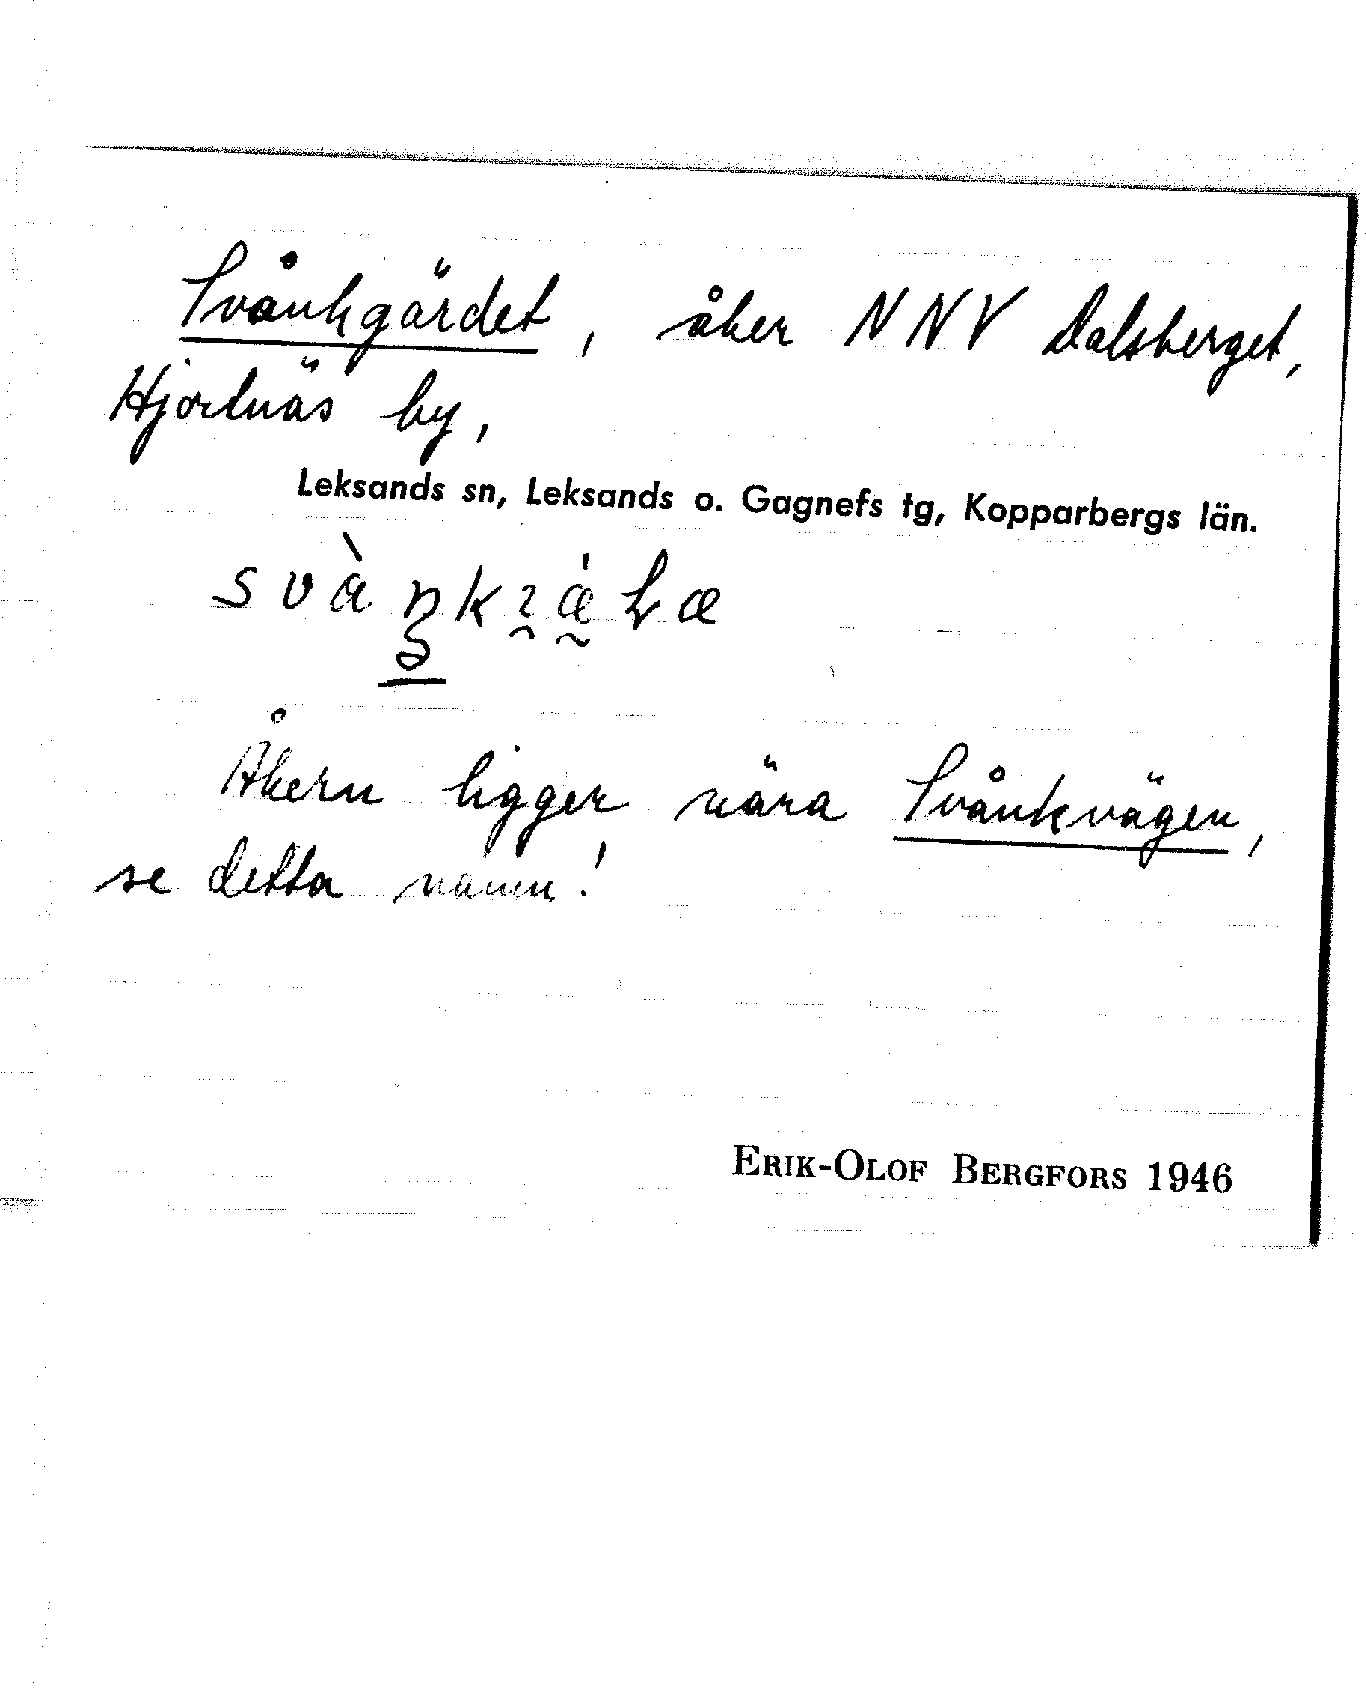 Svånkgärdet, åker NNV Dalsberget,
Hjortnäs by,
Leksands sn, Leksands o. Gagnefs tg, Kopparbergs län.
Åkern ligger nära Svånkvägen,
se detta namn!
ERIK-OLOF BERGFORS 1946